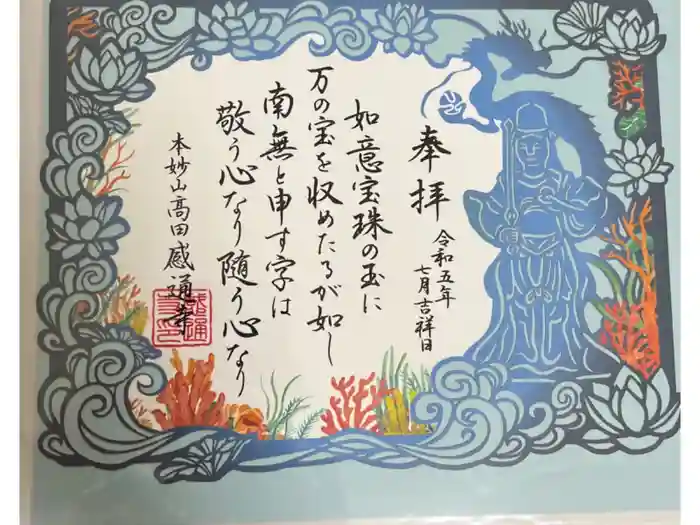 奉拝
令和五年
七月吉祥日
如意宝珠の玉に
万の宝を収めたるが如し
南無と申す字は
敬う心なり随う心なり
本妙山高田感通寺